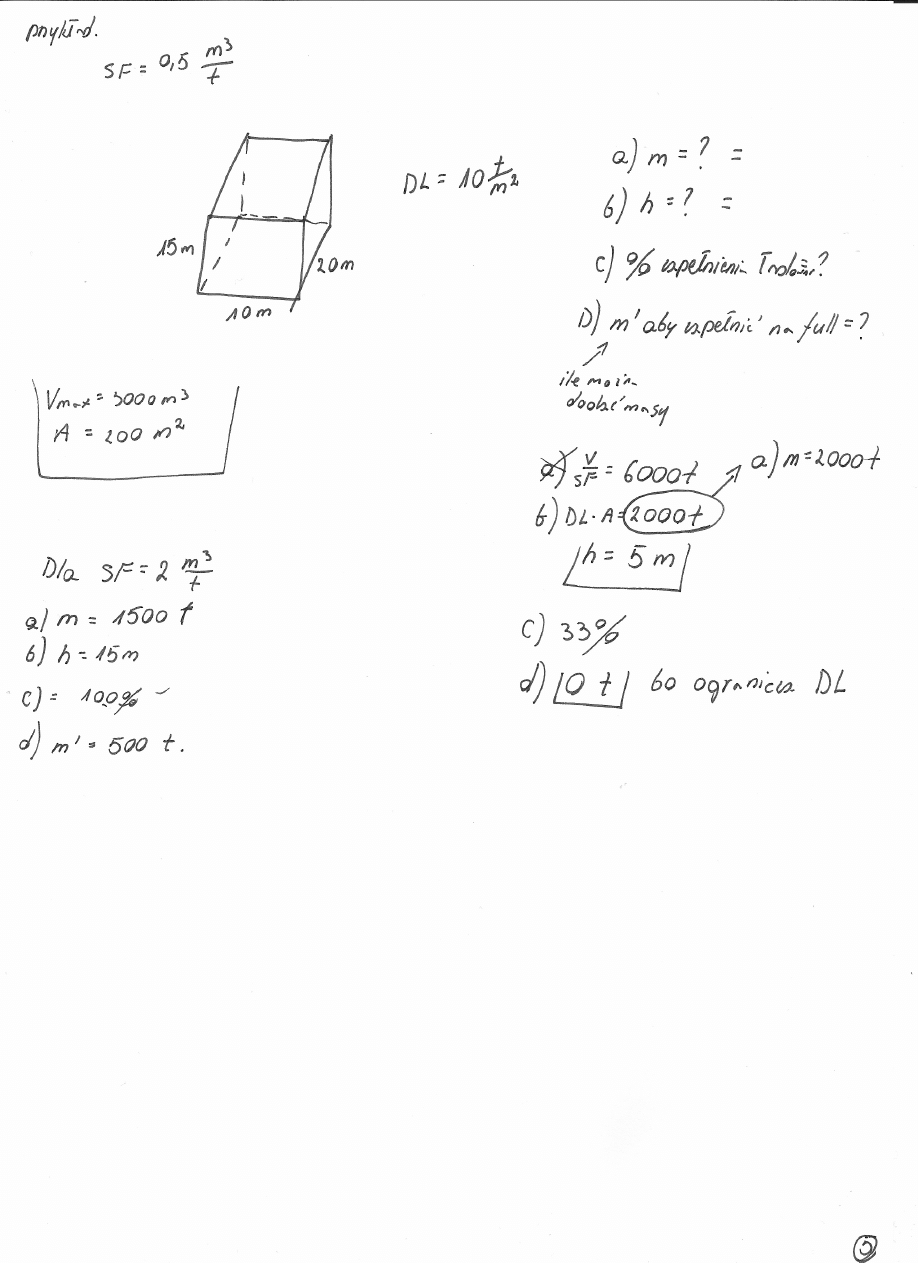 przykład.
SF = 0,5 m³/t
DL = 10 t/m²
15m
20m
10m
a) m = ? =
b) h = ? =
c) % wypełnienia ładowni?
D) m' aby wypełnić na full = ?
ile można
dodać masy
Vmax = 3000 m³
A = 200 m²
a) V/SF = 6000t
a) m = 2000t
b) DL · A = 2000t
h = 5 m
c) 33%
d) 0 t bo ogranicza DL
Dla SF = 2 m³/t
a) m = 1500 t
b) h = 15m
c) = 100%
d) m' = 500 t.
5